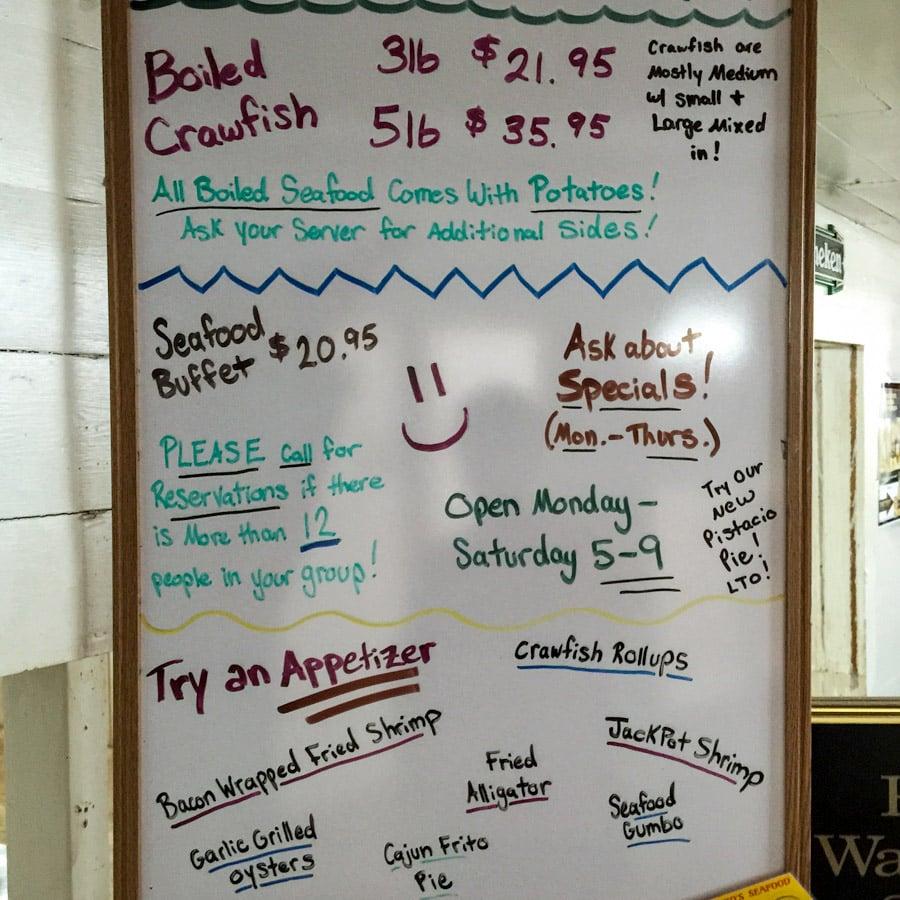 Boiled 3lb $21.95
Crawfish 5lb $35.95
Crawfish are
Mostly Medium
w/ small +
Large Mixed
in!
All Boiled Seafood Comes With Potatoes!
Ask your Server for Additional Sides!
Seafood
Buffet $20.95
Ask about
Specials!
(Mon.-Thurs.)
PLEASE call for
Reservations if there
is More than 12
people in your group!
Open Monday-
Saturday 5-9
Try Our
New
Pistacio
Pie!
LTO!
Try an Appetizer
Crawfish Rollups
Bacon Wrapped Fried Shrimp
Fried
Alligator
JackPot Shrimp
Garlic Grilled
oysters
Cajun Frito
Pie
Seafood
Gumbo
Wa
SEAFOOD